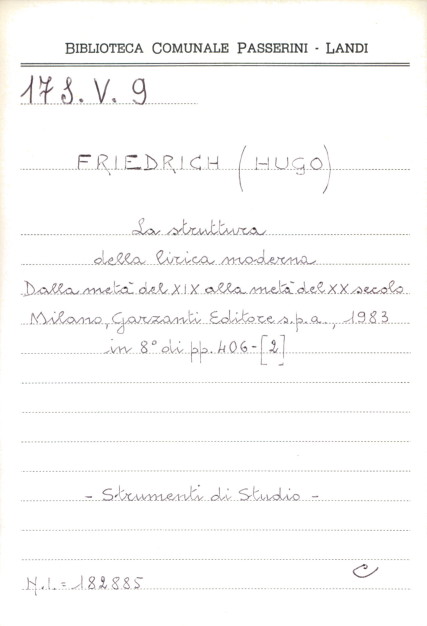 BIBLIOTECA COMUNALE PASSERINI - LANDI
17 S. V. 9
FRIEDRICH (HUGO)
La struttura
della lirica moderna
Dalla metà del XIX alla metà del XX secolo
Milano, Garzanti Editore s.p.a., 1983
in 8° di pp. 406-[2]
- Strumenti di Studio -
C
N.I.= 182885